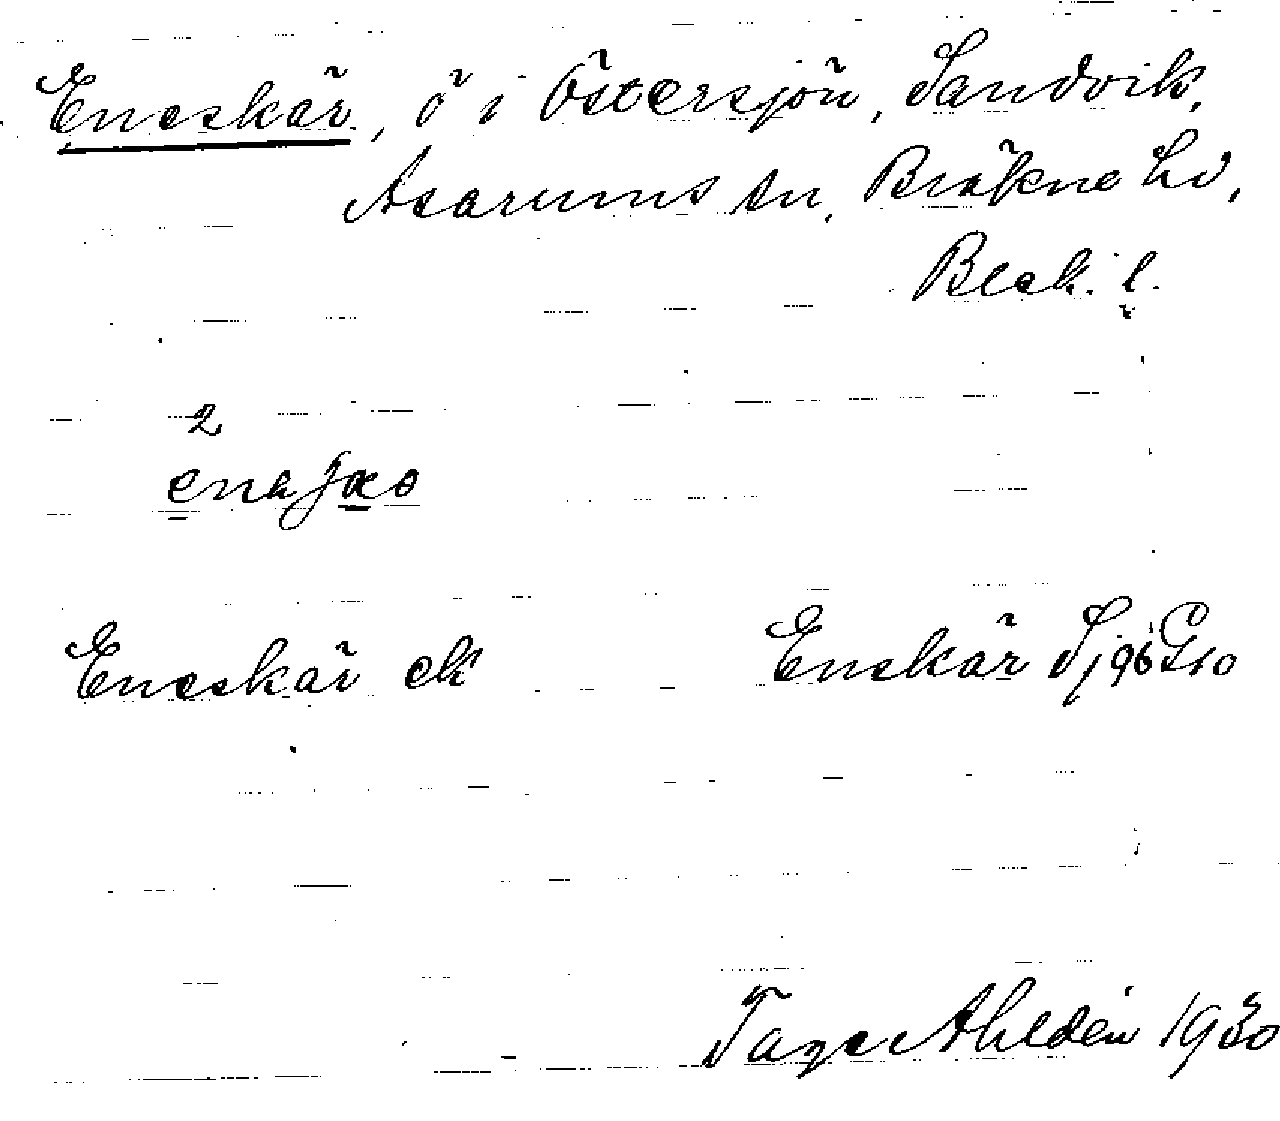 Eneskär, ö i Östersjön, Sandvik,
Asarums sn, Bräkne hd,
Blek. l.
2
Eneskär ek Enskär Sj 96 G10
Tage Ahldén 1930